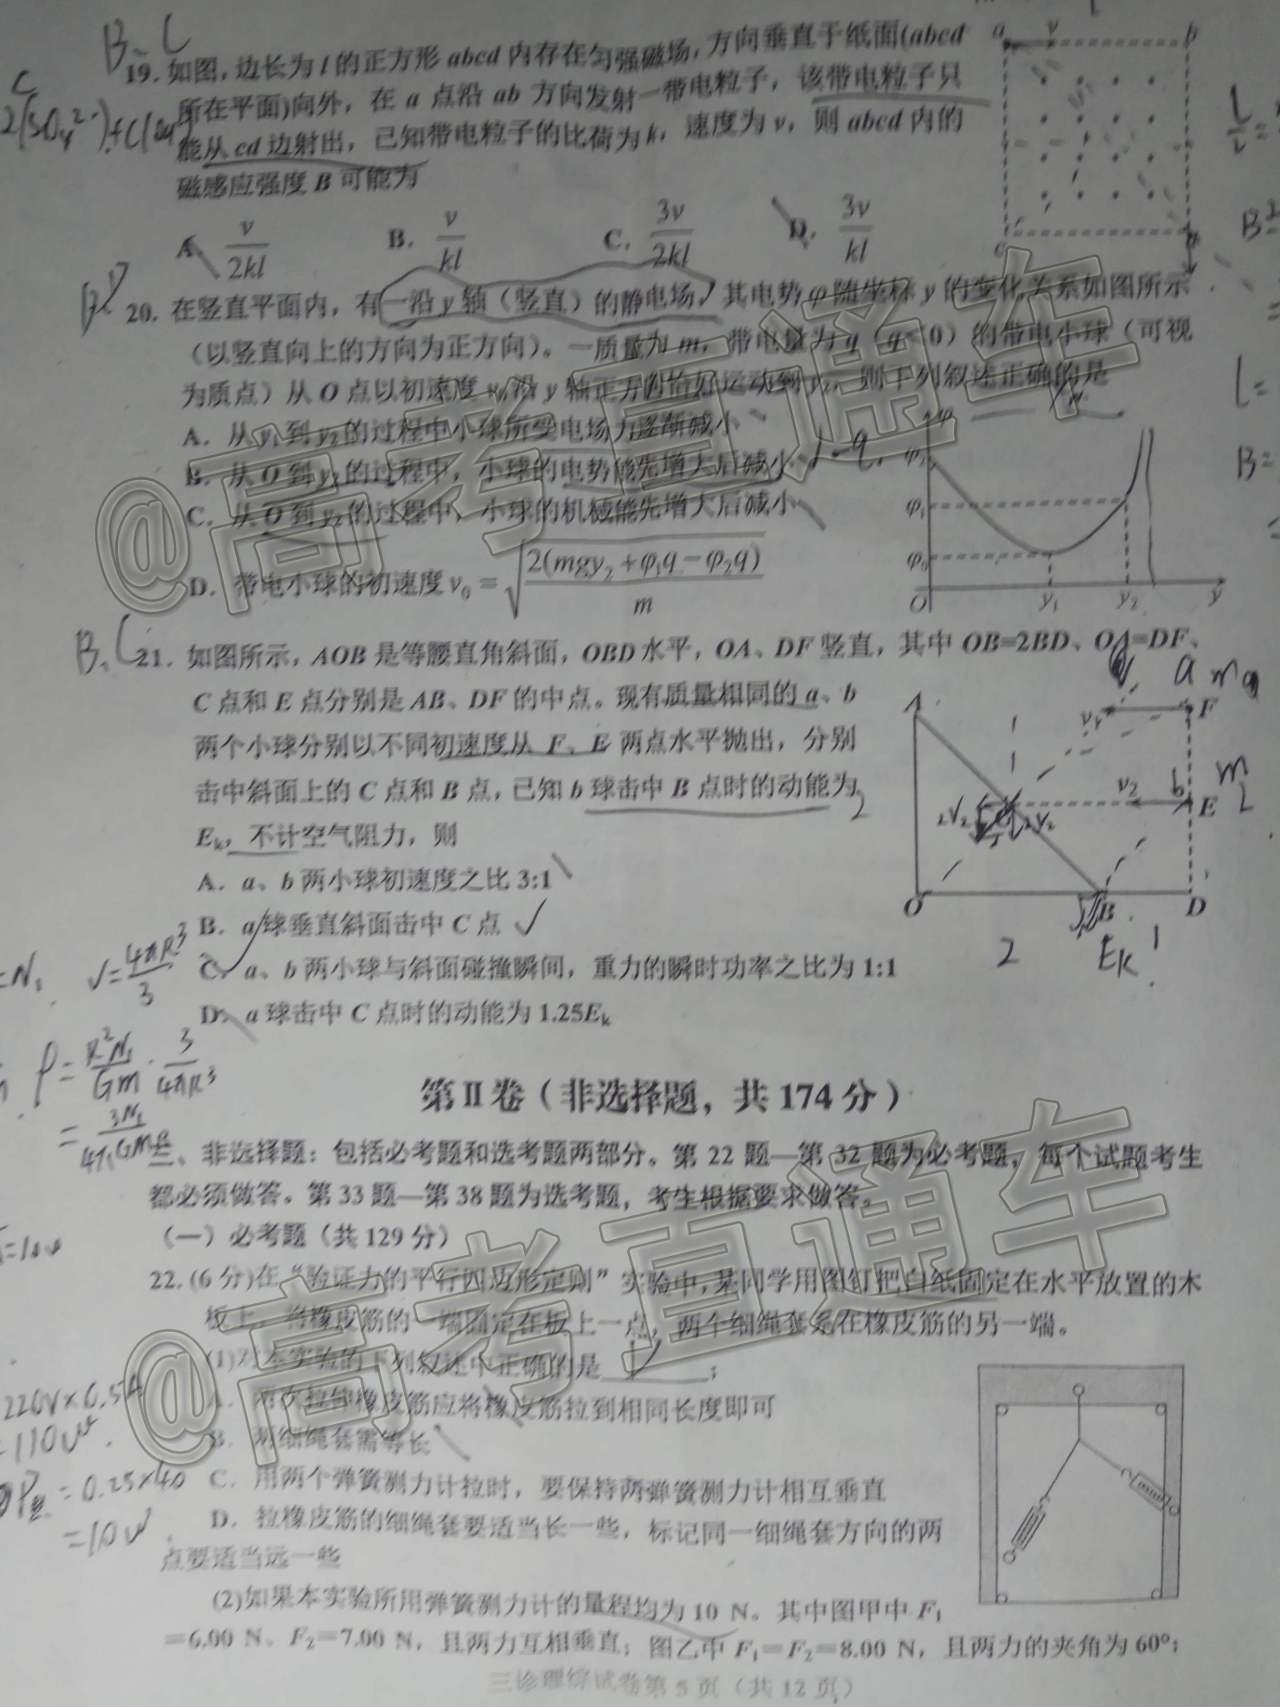 B、C
19. 如图，边长为 l 的正方形 abcd 内存在匀强磁场，方向垂直于纸面(abcd
所在平面)向外，在 a 点沿 ab 方向发射一带电粒子，该带电粒子只
能从 cd 边射出，已知带电粒子的比荷为 k，速度为 v，则 abcd 内的
磁感应强度 B 可能为
A. v/2kl B. v/kl C. 3v/2kl D. 3v/kl
a v b
c
20. 在竖直平面内，有一沿 y 轴（竖直）的静电场，其电势 φ 随坐标 y 的变化关系如图所示
（以竖直向上的方向为正方向）。一质量为 m，带电量为 q（q<0）的带电小球（可视
为质点）从 O 点以初速度 v₀沿 y 轴正方向恰好运动到 y₂，则下列叙述正确的是
A. 从 y₁到 y₂的过程中小球所受电场力逐渐减小
B. 从 O 到 y₂的过程中，小球的电势能先增大后减小
C. 从 O 到 y₂的过程中，小球的机械能先增大后减小
D. 带电小球的初速度 v₀ = √(2(mgy₂+φ₁q−φ₂q)/m)
φ
O y₁ y₂ y
B、C
21. 如图所示，AOB 是等腰直角斜面，OBD 水平，OA、DF 竖直，其中 OB=2BD、OA=DF、
C 点和 E 点分别是 AB、DF 的中点。现有质量相同的 a、b
两个小球分别以不同初速度从 F、E 两点水平抛出，分别
击中斜面上的 C 点和 B 点，已知 b 球击中 B 点时的动能为
Eₖ，不计空气阻力，则
A. a、b 两小球初速度之比 3:1
B. a 球垂直斜面击中 C 点
C. a、b 两小球与斜面碰撞瞬间，重力的瞬时功率之比为 1:1
D. a 球击中 C 点时的动能为 1.25Eₖ
A v₁ a F
v₂ b E
O B D
2 Eₖ 1
V=4πR³/3
第Ⅱ卷（非选择题，共 174 分）
三、非选择题：包括必考题和选考题两部分。第 22 题—第 32 题为必考题，每个试题考生
都必须做答。第 33 题—第 38 题为选考题，考生根据要求做答。
（一）必考题（共 129 分）
22. (6 分)在“验证力的平行四边形定则”实验中，某同学用图钉把白纸固定在水平放置的木
板上，将橡皮筋的一端固定在板上一点，两个细绳套系在橡皮筋的另一端。
(1)对本实验的下列叙述中正确的是________；
A. 两次拉伸橡皮筋应将橡皮筋拉到相同长度即可
B. 两细绳套需等长
C. 用两个弹簧测力计拉时，要保持两弹簧测力计相互垂直
D. 拉橡皮筋的细绳套要适当长一些，标记同一细绳套方向的两
点要适当远一些
(2)如果本实验所用弹簧测力计的量程均为 10 N。其中图甲中 F₁
=6.00 N、F₂=7.00 N，且两力互相垂直；图乙中 F₁=F₂=8.00 N，且两力的夹角为 60°；
220V×0.5A
=110W
=0.25×40
=10W
三诊理综试卷第 5 页（共 12 页）
@高考直通车
@高考直通车